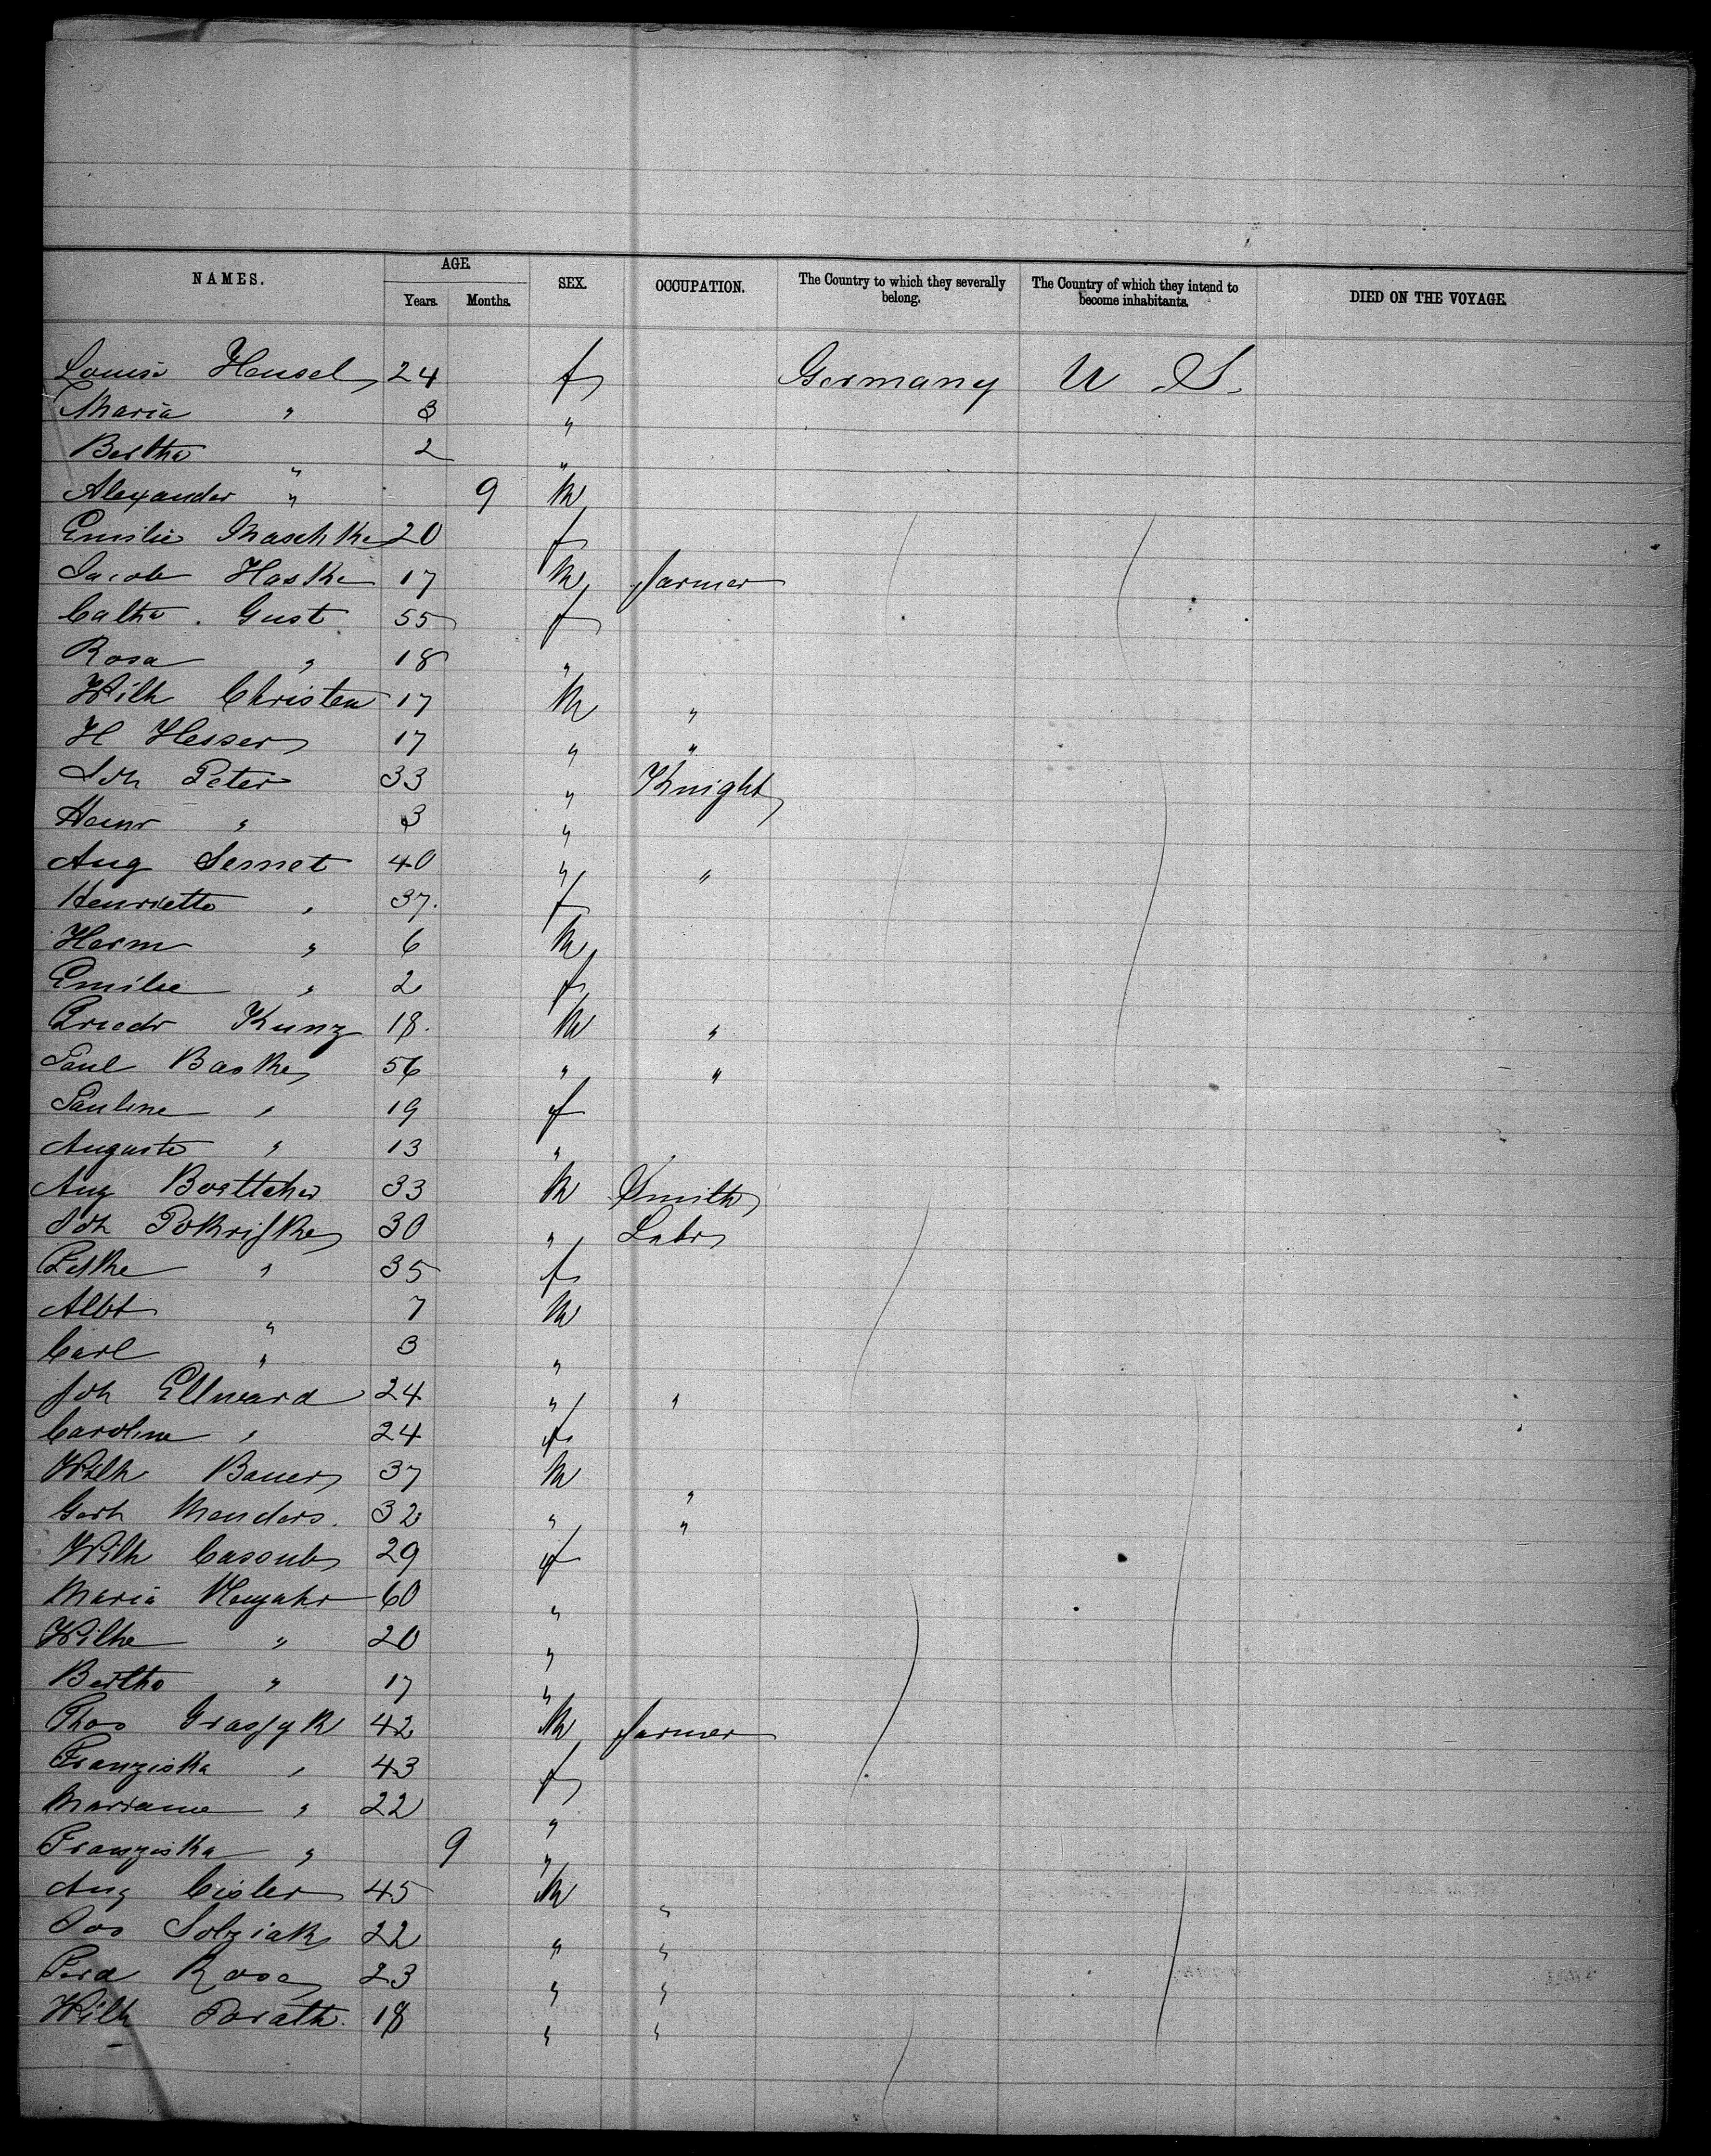 NAMES. AGE. Years. Months. SEX. OCCUPATION. The Country to which they severally belong. The Country of which they intend to become inhabitants. DIED ON THE VOYAGE.
Louise Hensel 24 f Germany U S.
Maria " 3 "
Bertha " 2 "
Alexander " 9 M
Emilie Maschke 20 f
Jacob Haske 17 M farmer
Catha. Gust 55 f
Rosa " 18 "
Wilh Christen 17 M "
H Hesser 17 " "
Joh Peter 33 " Knight
Heinr " 3 "
Aug Sennet 40 " "
Henriette " 37. f
Herm " 6 M
Emilie " 2 f
Friedr Kunz 18. M "
Paul Baske 56 " "
Pauline " 19 f
Auguste " 13 "
Aug Boettcher 33 M Smith
Joh Pokrifke 30 " Labr
" 35 f
Albt " 7 M
Carl " 3 "
Joh Ellward 24 " "
Caroline " 24 f
Wilh Bauer 37 M "
Gerh Menders. 32 " "
Wilh Cassub 29 f
Maria Neujahr 60 "
Wilhe " 20 "
Bertha " 17 "
Thos 42 M farmer
Franziska " 43 f
Marianne " 22 "
Franziska " 9 "
Aug Cisler 45 M "
Jos Solziak 22 " "
Ferd Rose 23 " "
Wilh Porath. 18 " "